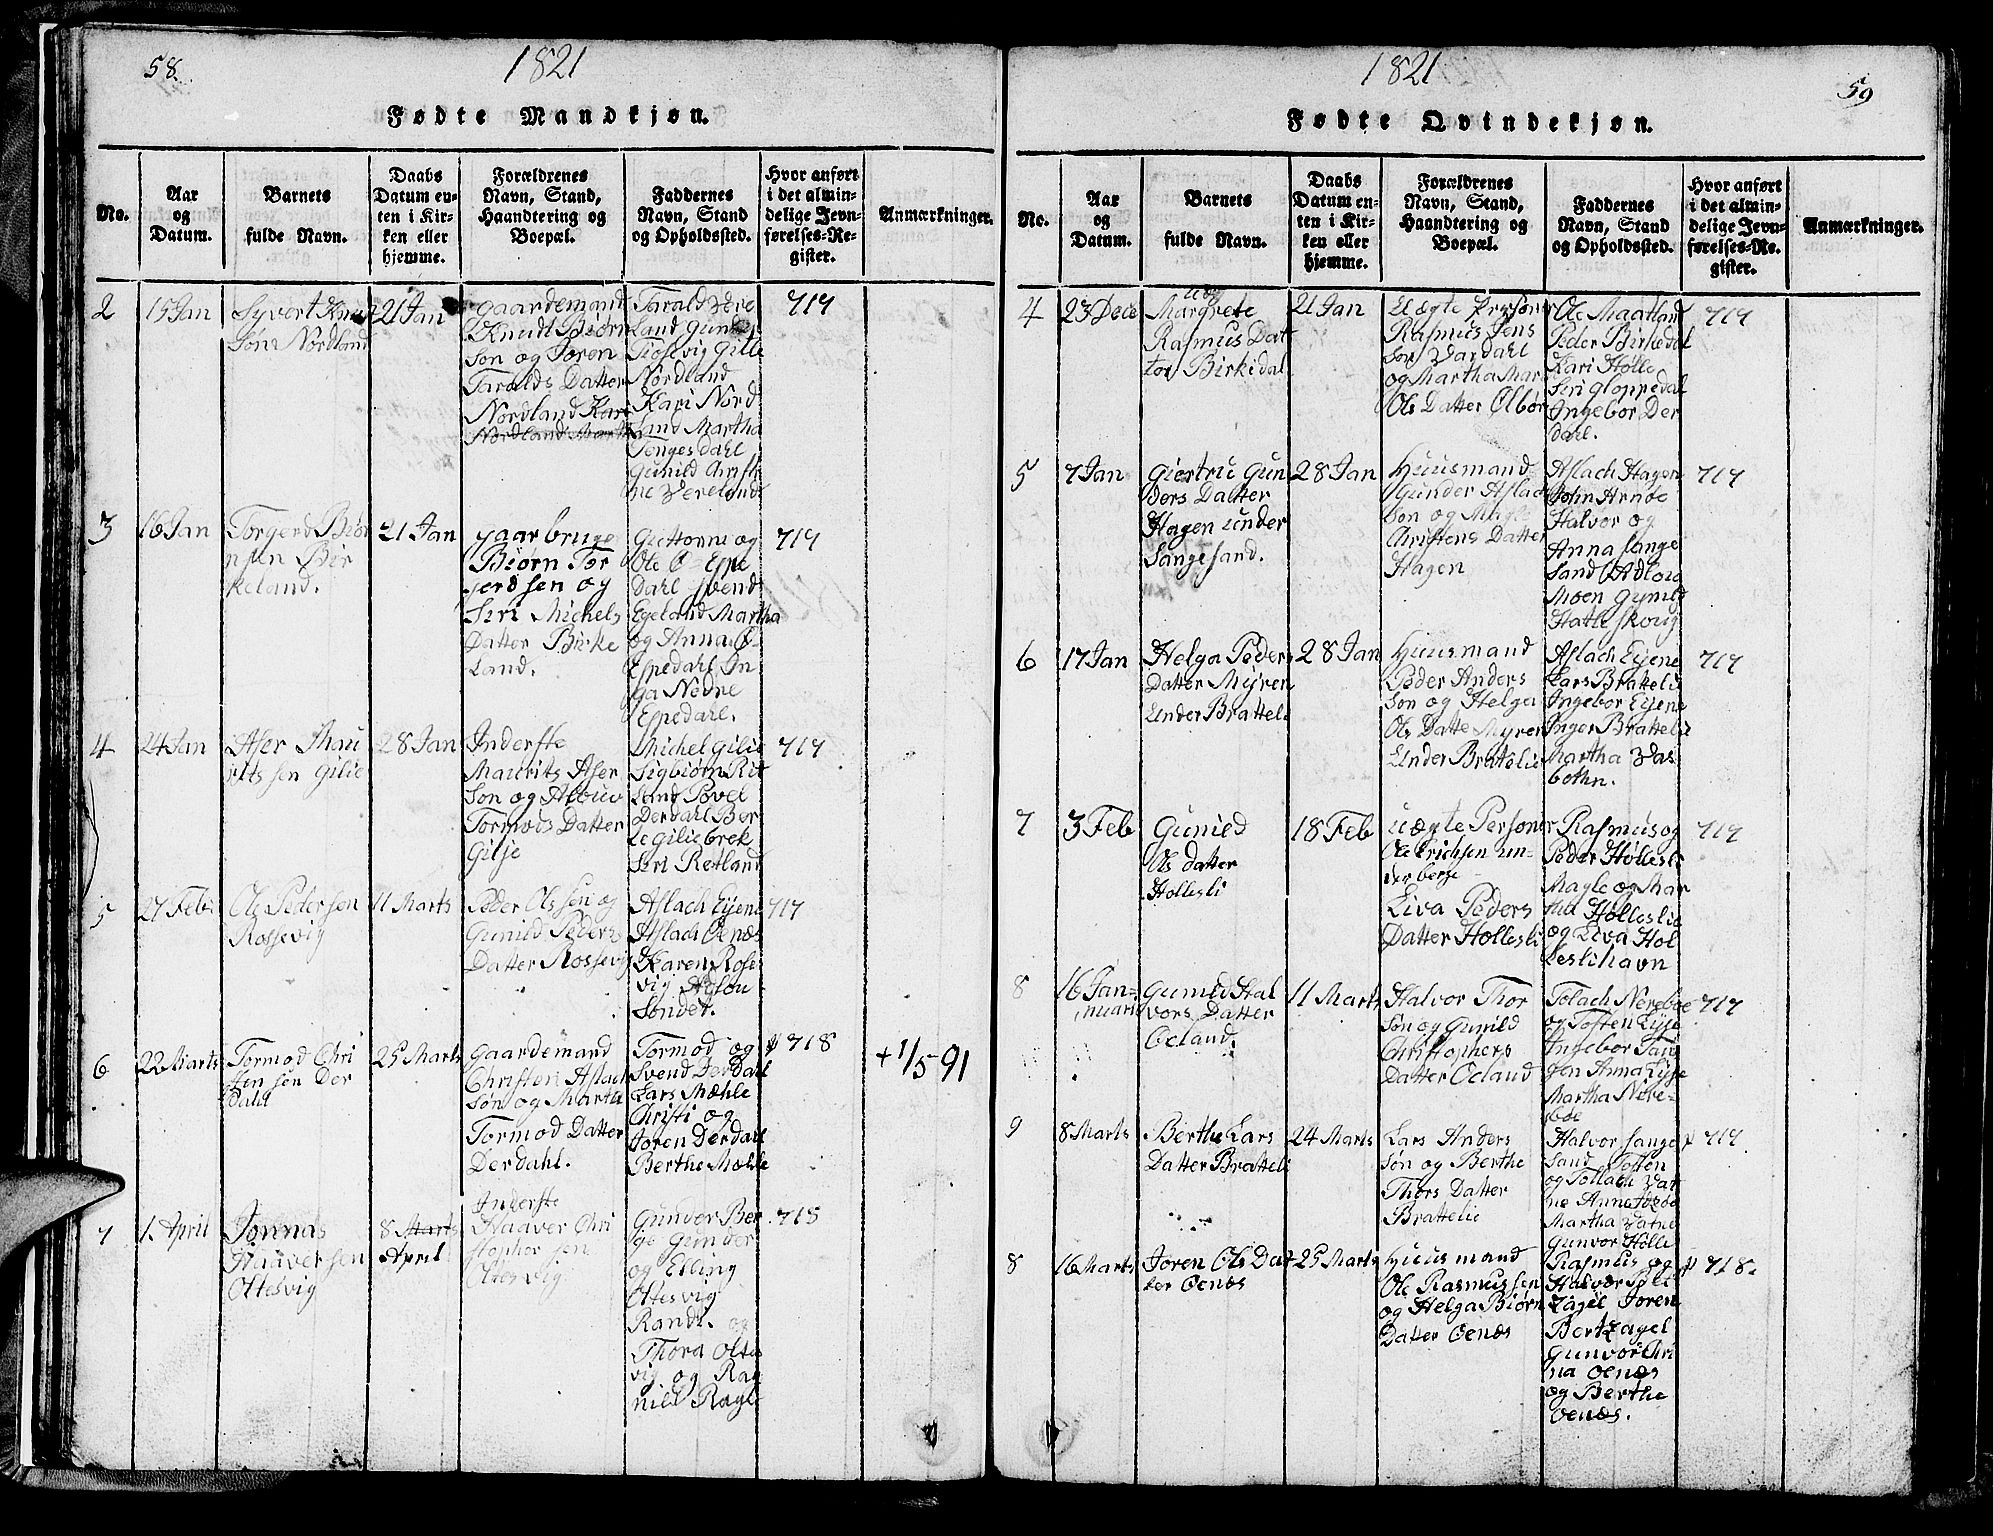 58.
1821
Fødte Mandkjøn.
No.
Aar
og
Datum.
Barnets
fulde Navn.
Daabs
Datum en-
ten i Kir-
ken eller
hjemme.
Forældrenes
Navn, Stand,
Haandtering og
Boepæl.
Faddernes
Navn, Stand
og Opholdssted.
Hvor anført
i det almin-
delige Jevn-
førelses-Re-
gister.
Anmærkninger.
2
15 Jan
Syvert Knud
Søns Nordland
21 Jan
Gaardemand
Knudt Biørn
Søn og Joren
Taralds Datter
Nordland Kari
Nordland Martha
Tarald
Land Gunder
Giøsevig Gitle
Nordland
Kari Nord
Land Martha
Tenges Dahl
Gunild Christi
ne Vereland
717
3
16 Jan
Torgerd Biør
nsen Bir
keland.
21 Jan
gaarbruge
Biørn Tor
jerdsen og
Siri Michels
Datter Birke
Land.
og
Ole Ø= Espe
Dahl Svend
Egeland Martha
og Anna Ø-
Espedahl In
ga Nedre
Espedahl.
717
4
24 Jan
Aser Mau
ritssen Gilie
28 Jan
Inderste
Maurits Aser
Søn og
Tormois Datter
Gilje
Michel Gilie
Sigbiørn Ret
Land Povel
Derdahl Ber
te Gilie brek
Siri Retland
717
5
27 Feb.
Ole Pedersen
Rossevig
11 Marts
Peder Olssen og
Gunild Peders
Datter Rossevig
Aslach Eijene
Aslach Oenæs
Karen Rose-
vig
Søndet.
717
6
22 Marts
Tormod Chri
stensen Der
dahl
25 Marts
Gaardemand
Christen Aslach
Søn og Martha
Tormod Datter
Derdahl.
Tormod og
Svend Derdahl
Lars Mæhle
Christi og
Joren Derdahl
Berthe Mæhle
718
+ 1/5 91
7
1 April
Jonnas
Haaversen
Oltesvig
8 Marts
April
Inderste
Haaver Chri
stopher sen
Oltesvig
Gunver Ber
ge Gunder
og Elling
Oltesvig
Randi. og
Thora Oltes
vig og Rag
nild Rage
718
1821
59
Fødte Qvindekjøn.
No.
Aar
og
Datum.
Barnets
fulde Navn.
Daabs
Datum en-
ten i Kir-
ken eller
hjemme.
Forældrenes
Navn, Stand,
Haandtering og
Boepæl.
Faddernes
Navn, Stand
og Opholdssted.
Hvor anført
i det almin-
delige Jevn-
førelses-Re-
gister.
Anmærkninger.
4
23 Dece
Margrete
Rasmus Dat
ter Birkedal
21 Jan
Uægte Personer
Rasmus Jens
Søn Vardahl
og Martha Mar
Ols Datter Olbør
Ole Maatland
Peder Birkedal
Kari Hølle
Siri Gloppedal
Ingebor Der
dahl.
717
5
7 Jan
Giertru Gun
ders Datter
Hagen under
Langesand.
28 Jan
Huusmand
Gunder Aslach
Søn og
Christens Datter
Hagen
Aslach Hagen
John Arnøe
Halvor og
Anna Lange
Sand
Moen Gunild
Hatleskoug
717
6
17 Jan
Helga Peders
Datter Myren
Under Bratteli
28 Jan
Huusmand
Peder Anders
Søn og Helga
Ols Datte Myren
Under Bratelie
Aslach Eijene
Lars Brattelie
Ingebor Eijene
Inger Brattelie
Martha Vas
bothn.
717
7
3 Feb
Gunild
Ols datter
Hollesli
18 Feb
Uægte Personer
Ole Erichsen un-
der berge
Eiva Peders
Datter Hollesli
Rasmus og
Peder Høllesli
Magle og Mar
tha Hølleslie
og Eiva Hol
leslihavn
717
8
16 Jan-
nuari
Gunild Hal
vors Datter
Ocland.
11 Marts
Halvor Thor
Søn og Gunild
Christophers
Datter Ocland
Tolach Nereboe
og Tosten Eije
Ingebor
Anna Eije
Martha Nere-
boe
717
9
8 Marts
Berthe Lars
Datter Bratteli
24 Marts
Lars Anders
Søn og Berthe
Thors Datter
Brattelie
Halvor Lange
Sand Tosten
og Tollach Vat
ne Anne
Martha Vatne
Gunvor Hølle
717
8
16 Marts
Joren Ols Dat
ter Oenæs
25 Marts
Huusmand
Ole Rasmussen
og Helga Biørn
Datter Oenæs
Rasmus og
Halvor
Joren
Bertzagel
Gunvor Chri
na Oenæs
og Berthe
Oenæs.
718.